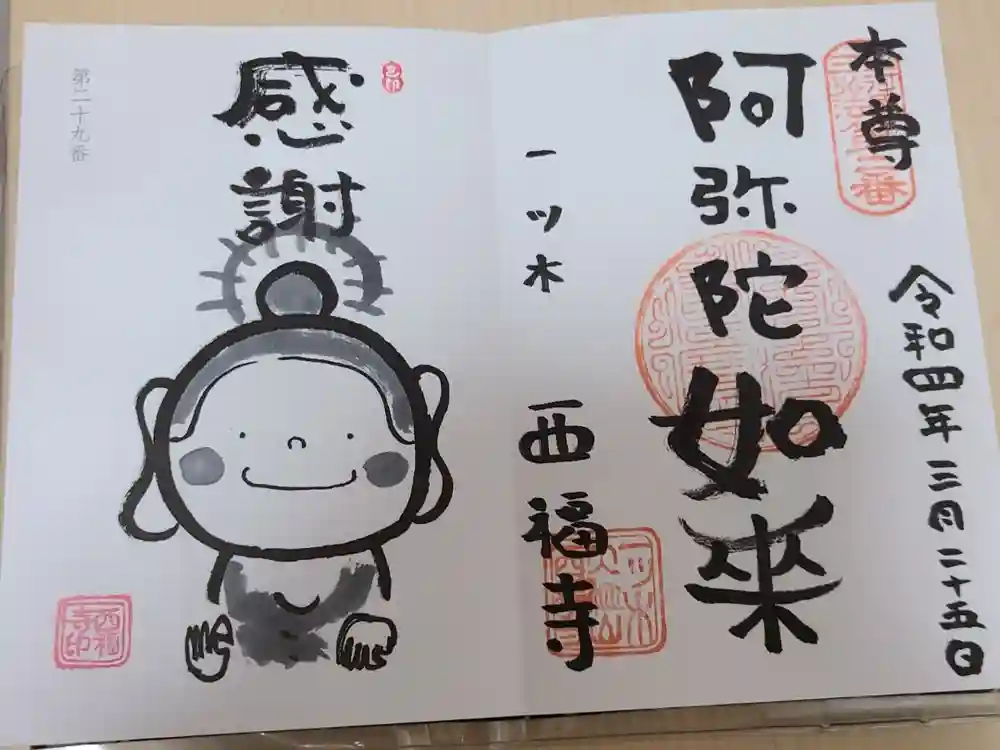 本尊
令和四年三月二十五日
阿弥陀如来
一ツ木 西福寺
感謝
第二十九番
西福寺印